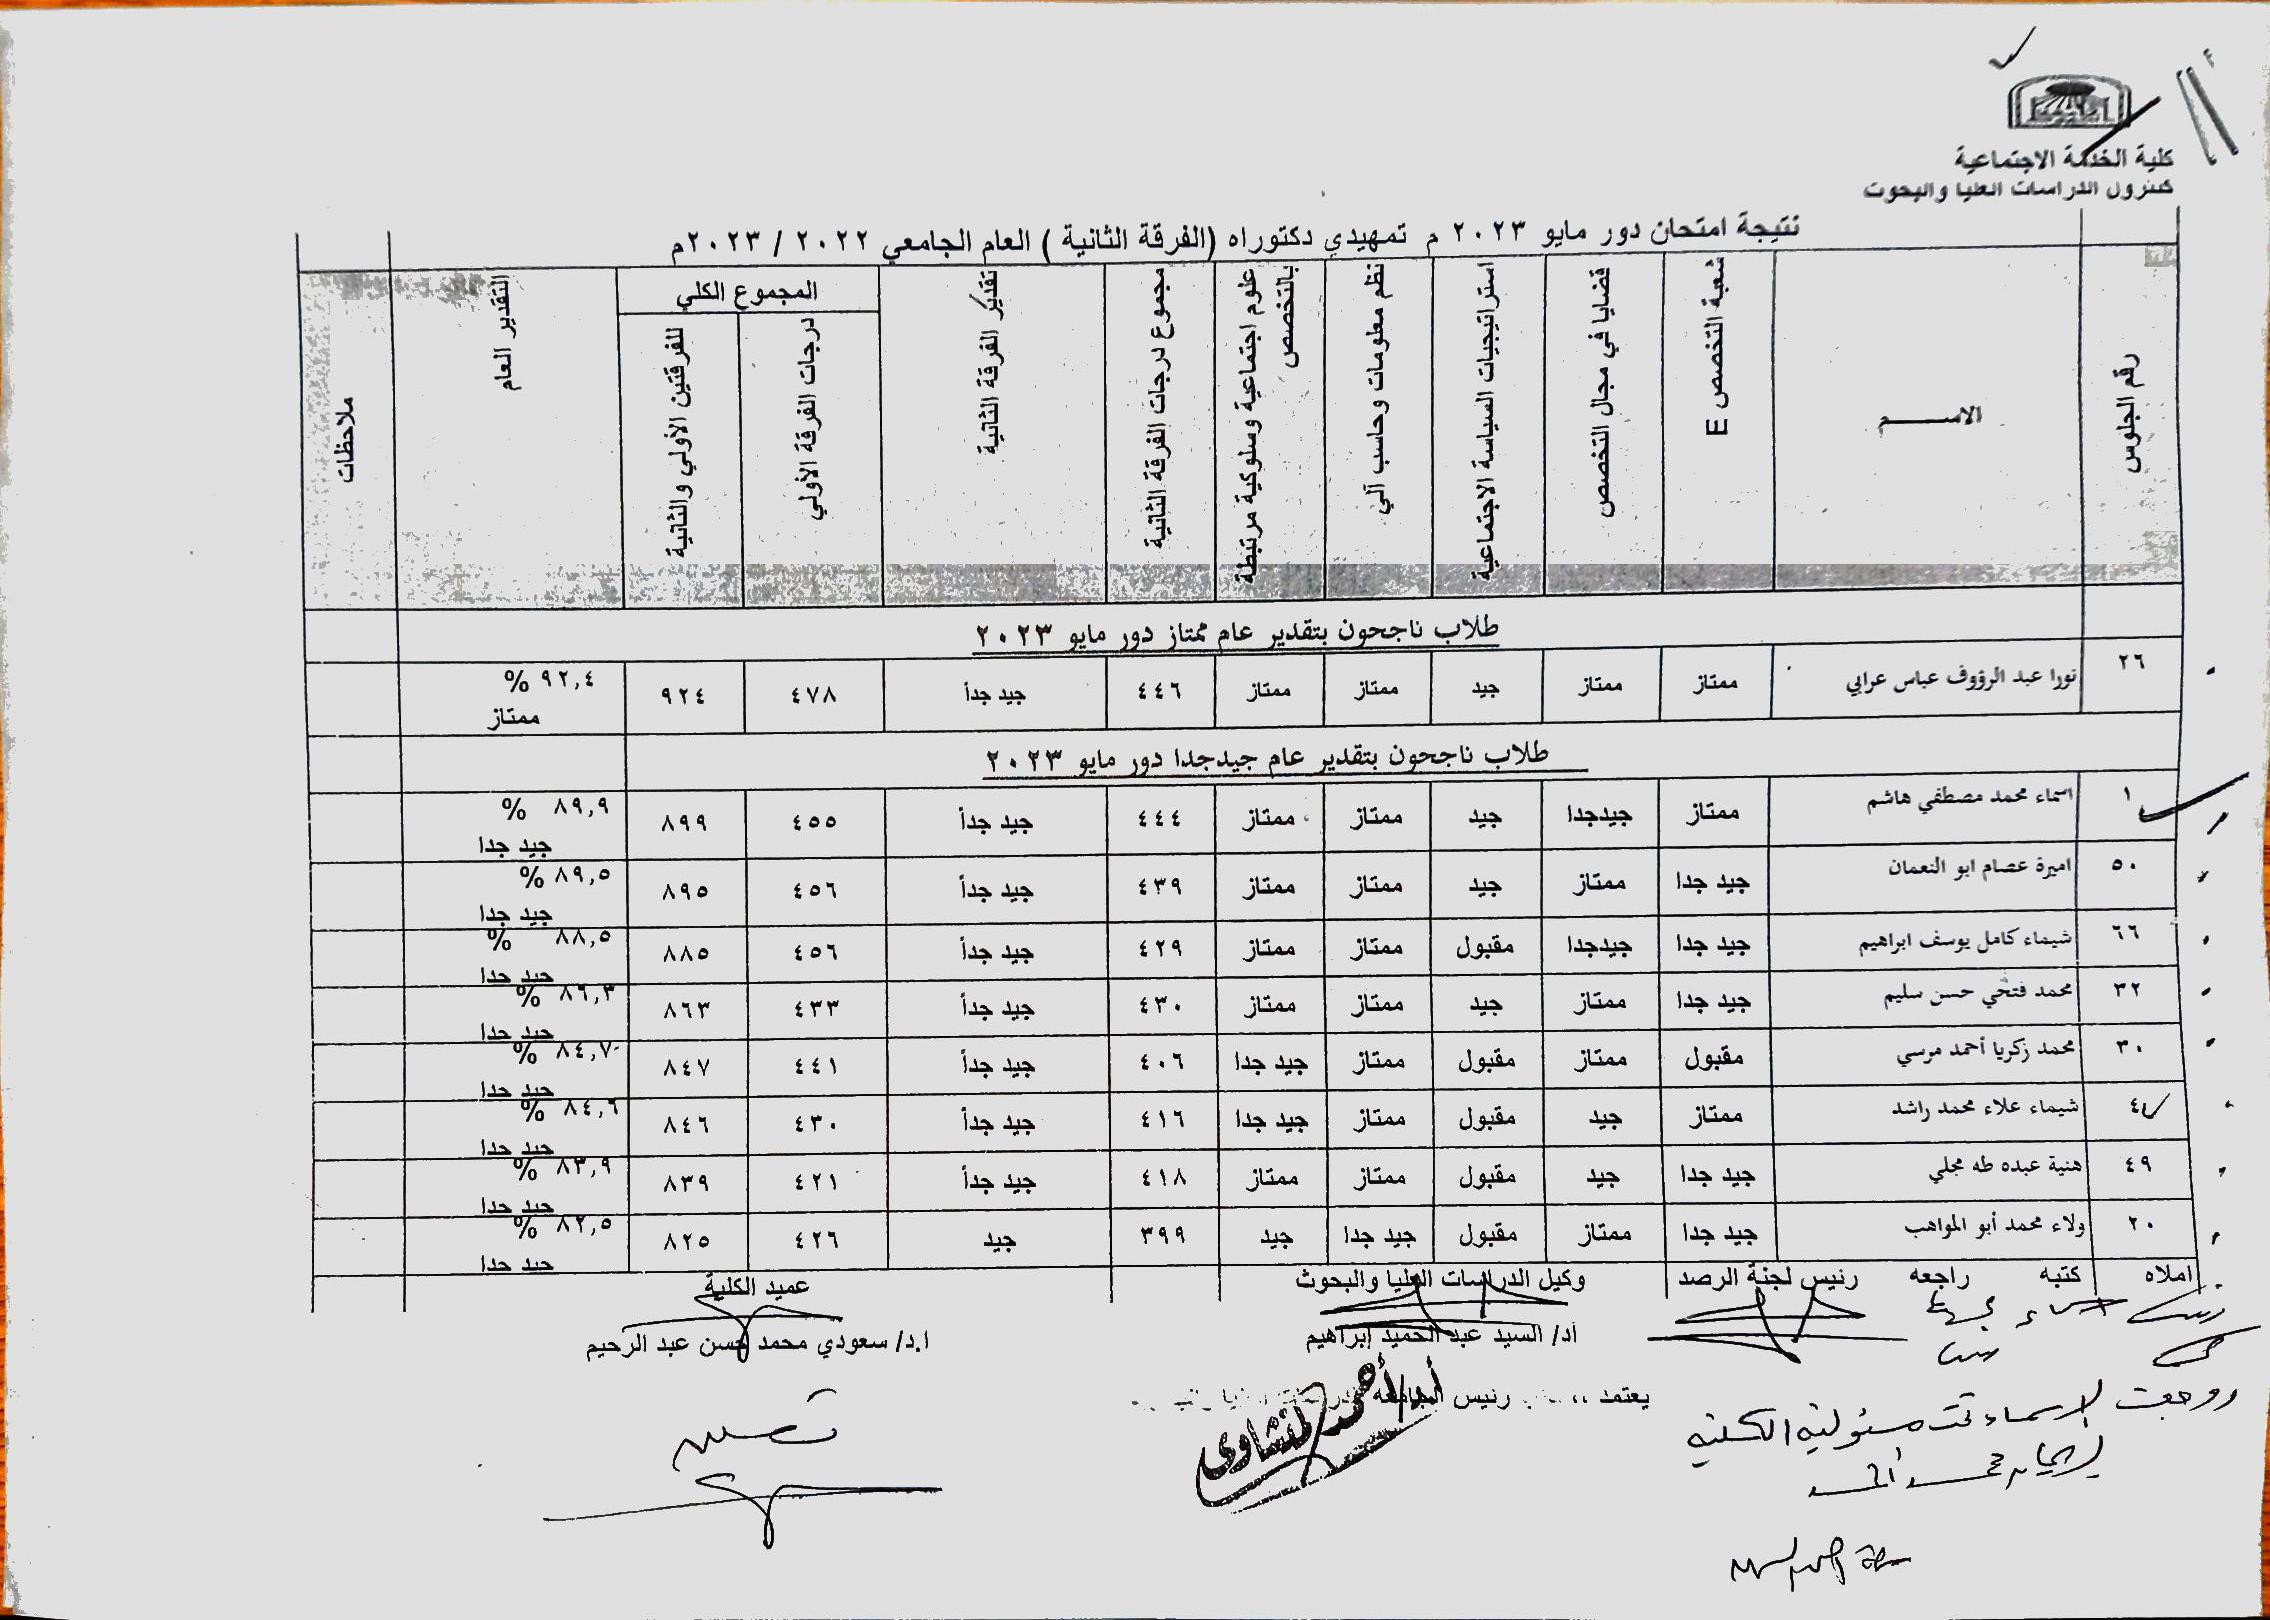 كلية الخدمة الاجتماعية
كنترول الدراسات العليا والبحوث
نتيجة امتحان دور مايو ٢٠٢٣ م تمهيدي دكتوراه (الفرقة الثانية ) العام الجامعي ٢٠٢٢ / ٢٠٢٣م
رقم الجلوس | الاسم | شعبة التخصص E | قضايا في مجال التخصص | استراتيجيات السياسة الاجتماعية | نظم معلومات وحاسب آلي | علوم اجتماعية وسلوكية مرتبطة بالتخصص | مجموع درجات الفرقة الثانية | تقدير الفرقة الثانية | المجموع الكلي | درجات الفرقة الأولي | للفرقتين الأولي والثانية | التقدير العام | ملاحظات
طلاب ناجحون بتقدير عام ممتاز دور مايو ٢٠٢٣
٢٦ | نورا عبد الرؤوف عباس عرابي | ممتاز | ممتاز | جيد | ممتاز | ممتاز | ٤٤٦ | جيد جداً | ٤٧٨ | ٩٢٤ | ٩٢,٤ % ممتاز
طلاب ناجحون بتقدير عام جيدجدا دور مايو ٢٠٢٣
١ | اسماء محمد مصطفي هاشم | ممتاز | جيدجدا | جيد | ممتاز | ممتاز | ٤٤٤ | جيد جداً | ٤٥٥ | ٨٩٩ | ٨٩,٩ % جيد جدا
٥٠ | اميرة عصام ابو النعمان | جيد جدا | ممتاز | جيد | ممتاز | ممتاز | ٤٣٩ | جيد جداً | ٤٥٦ | ٨٩٥ | ٨٩,٥ % جيد جدا
٦٦ | شيماء كامل يوسف ابراهيم | جيد جدا | جيدجدا | مقبول | ممتاز | ممتاز | ٤٢٩ | جيد جداً | ٤٥٦ | ٨٨٥ | ٨٨,٥ % جيد جدا
٣٢ | محمد فتحي حسن سليم | جيد جدا | ممتاز | جيد | ممتاز | ممتاز | ٤٣٠ | جيد جداً | ٤٣٣ | ٨٦٣ | ٨٦,٣ % جيد جدا
٣٠ | محمد زكريا أحمد مرسي | مقبول | ممتاز | مقبول | ممتاز | جيد جدا | ٤٠٦ | جيد جداً | ٤٤١ | ٨٤٧ | ٨٤,٧ % جيد جدا
٤ | شيماء علاء محمد راشد | ممتاز | جيد | مقبول | ممتاز | جيد جدا | ٤١٦ | جيد جداً | ٤٣٠ | ٨٤٦ | ٨٤,٦ % جيد جدا
٤٩ | هنية عبده طه مجلي | جيد جدا | جيد | مقبول | ممتاز | ممتاز | ٤١٨ | جيد جداً | ٤٢١ | ٨٣٩ | ٨٣,٩ % جيد جدا
٢٠ | ولاء محمد أبو المواهب | جيد جدا | ممتاز | مقبول | جيد جدا | جيد | ٣٩٩ | جيد | ٤٢٦ | ٨٢٥ | ٨٢,٥ % جيد جدا
املاه كتبه راجعه رئيس لجنة الرصد وكيل الدراسات العليا والبحوث عميد الكلية
أد/ السيد عبد الحميد إبراهيم ا.د/ سعودي محمد حسن عبد الرحيم
يعتمد ،، رئيس الجامعة
روجعت الاسماء تحت مسئولية الكلية